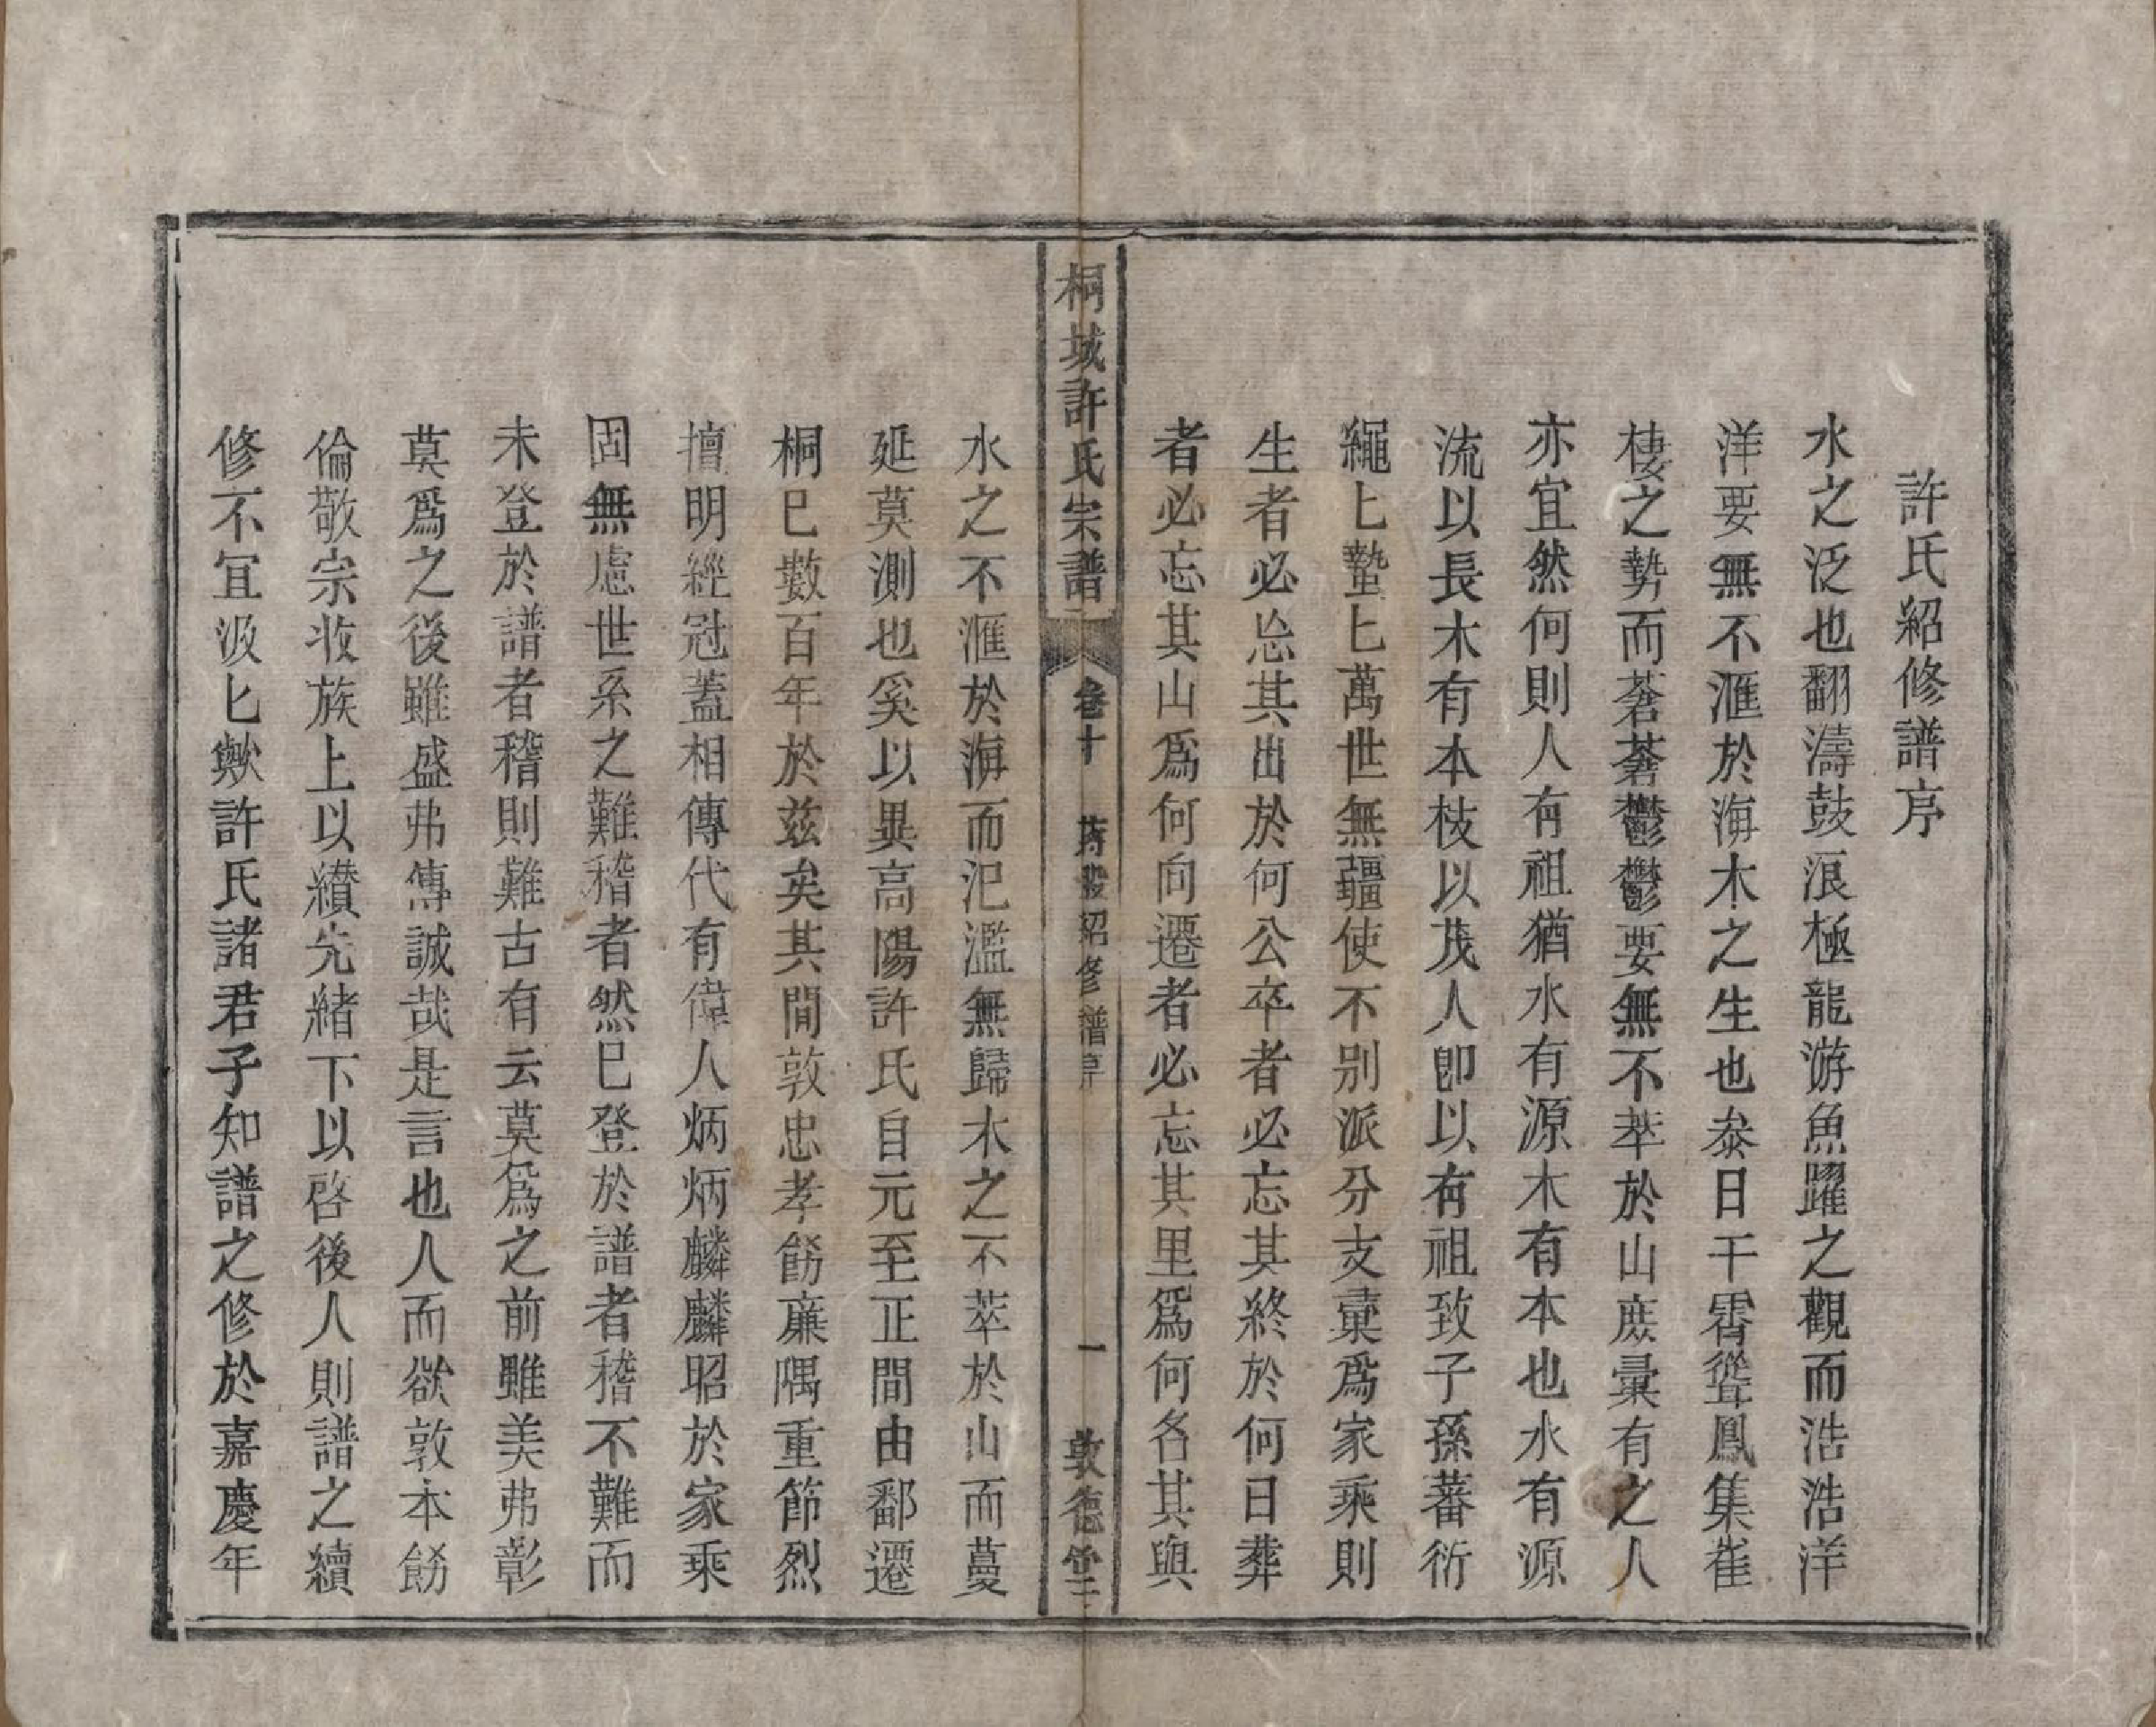 許氏紹修譜序
水之泛也翻濤鼓浪極龍游魚躍之觀而浩浩洋
洋要無不滙於海木之生也叅日干霄聳鳳集萑
棲之勢而蒼蒼鬱鬱要無不萃於山庶彙有之人
亦宜然何則人有祖猶水有源木有本也水有源
流以長木有本枝以茂人卽以有祖致子孫蕃衍
繩匕蟄匕萬世無疆使不别派分支彙爲家乘則
生者必忘其出於何公卒者必忘其終於何日葬
者必忘其山爲何向遷者必忘其里爲何名其與
桐城許氏宗譜
卷十
蔣 紹修譜序
一
敦德堂
水之不滙於海而汜濫無歸木之不萃於山而蔓
延莫測也奚以異高陽許氏自元至正間由鄱遷
桐巳數百年於兹矣其間敦忠孝飭廉隅重節烈
擅明經冠蓋相傳代有偉人炳炳麟麟昭於家乘
固無慮世系之難稽者然巳登於譜者稽不難而
未登於譜者稽則難古有云莫爲之前雖美弗彰
莫爲之後雖盛弗傳誠哉是言也人而欲敦本飭
倫敬宗收族上以纘先緒下以啓後人則譜之續
修不宜汲匕歟許氏諸君子知譜之修於嘉慶年